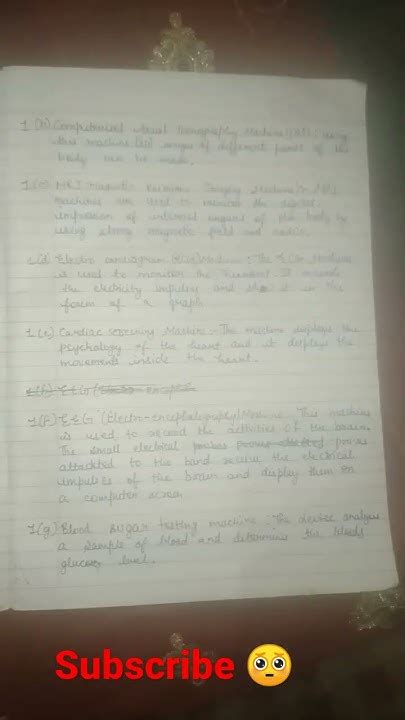 1 (b) Computerised Axial Tomography Machine (CAT) : using
this machine (3D) images of different parts of the
body can be made.
1(c) MRI Magnetic Resonance Imaging Machine : MRI
machines are used to monitor the
impression of internal organs of the body by
using strong magnetic field and radio.
1(d) Electro cardiogram (ECG) Machine : The ECG Machine
is used to monitor the heartbeat. It records
the electricity impulses and show it in the
form of a graph.
1(e) Cardiac screening Machine :- The machine displays the
psychology of the heart and it displays the
movements inside the heart.
1(f) E E G (Electro-
1(f) E E G (Electro-encephalography) Machine. This machine
is used to record the activities of the brain.
The small electrical probes
attackted to the band recive the electrical
impulses of the brain and display them on
a computer screen.
1(g) Blood sugar testing machine : The device analyses
a sample of blood and determine the bloods
glucose level.
Subscribe 🥺